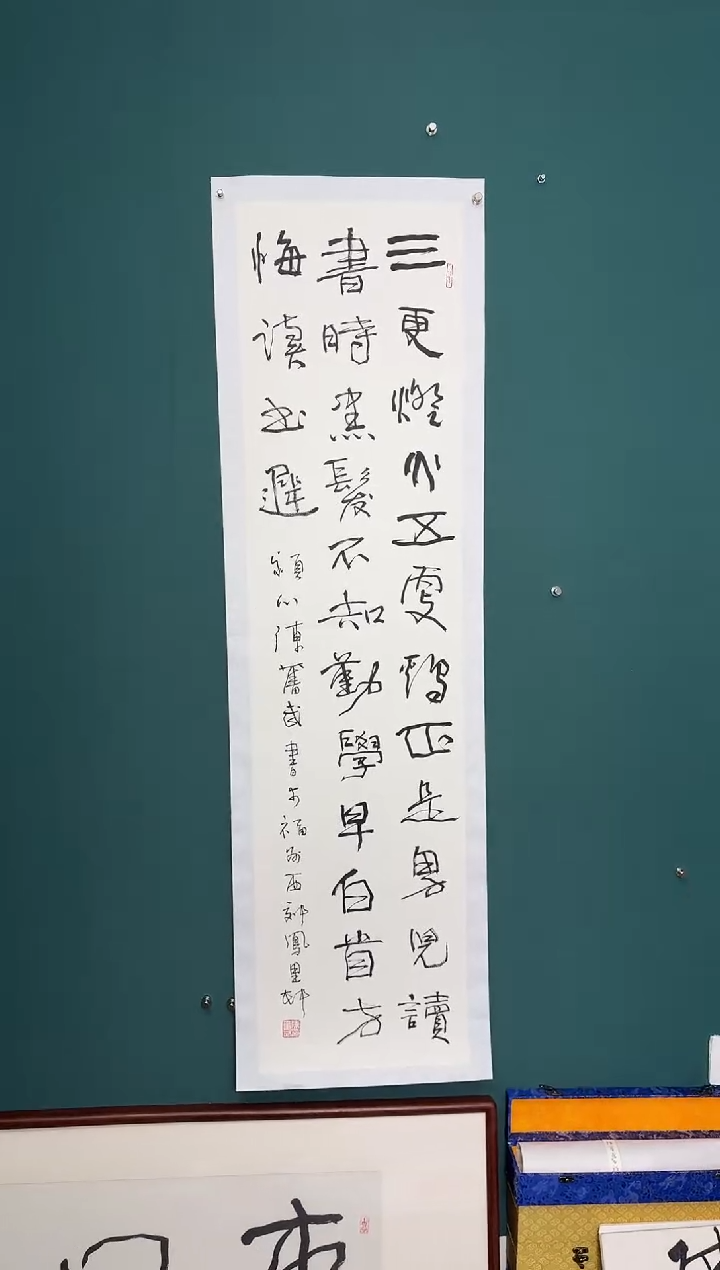 三更燈火五更鷄正是男兒讀
書時黑髮不知勤學早白首方
悔讀書遲
書於福州西
鳳里